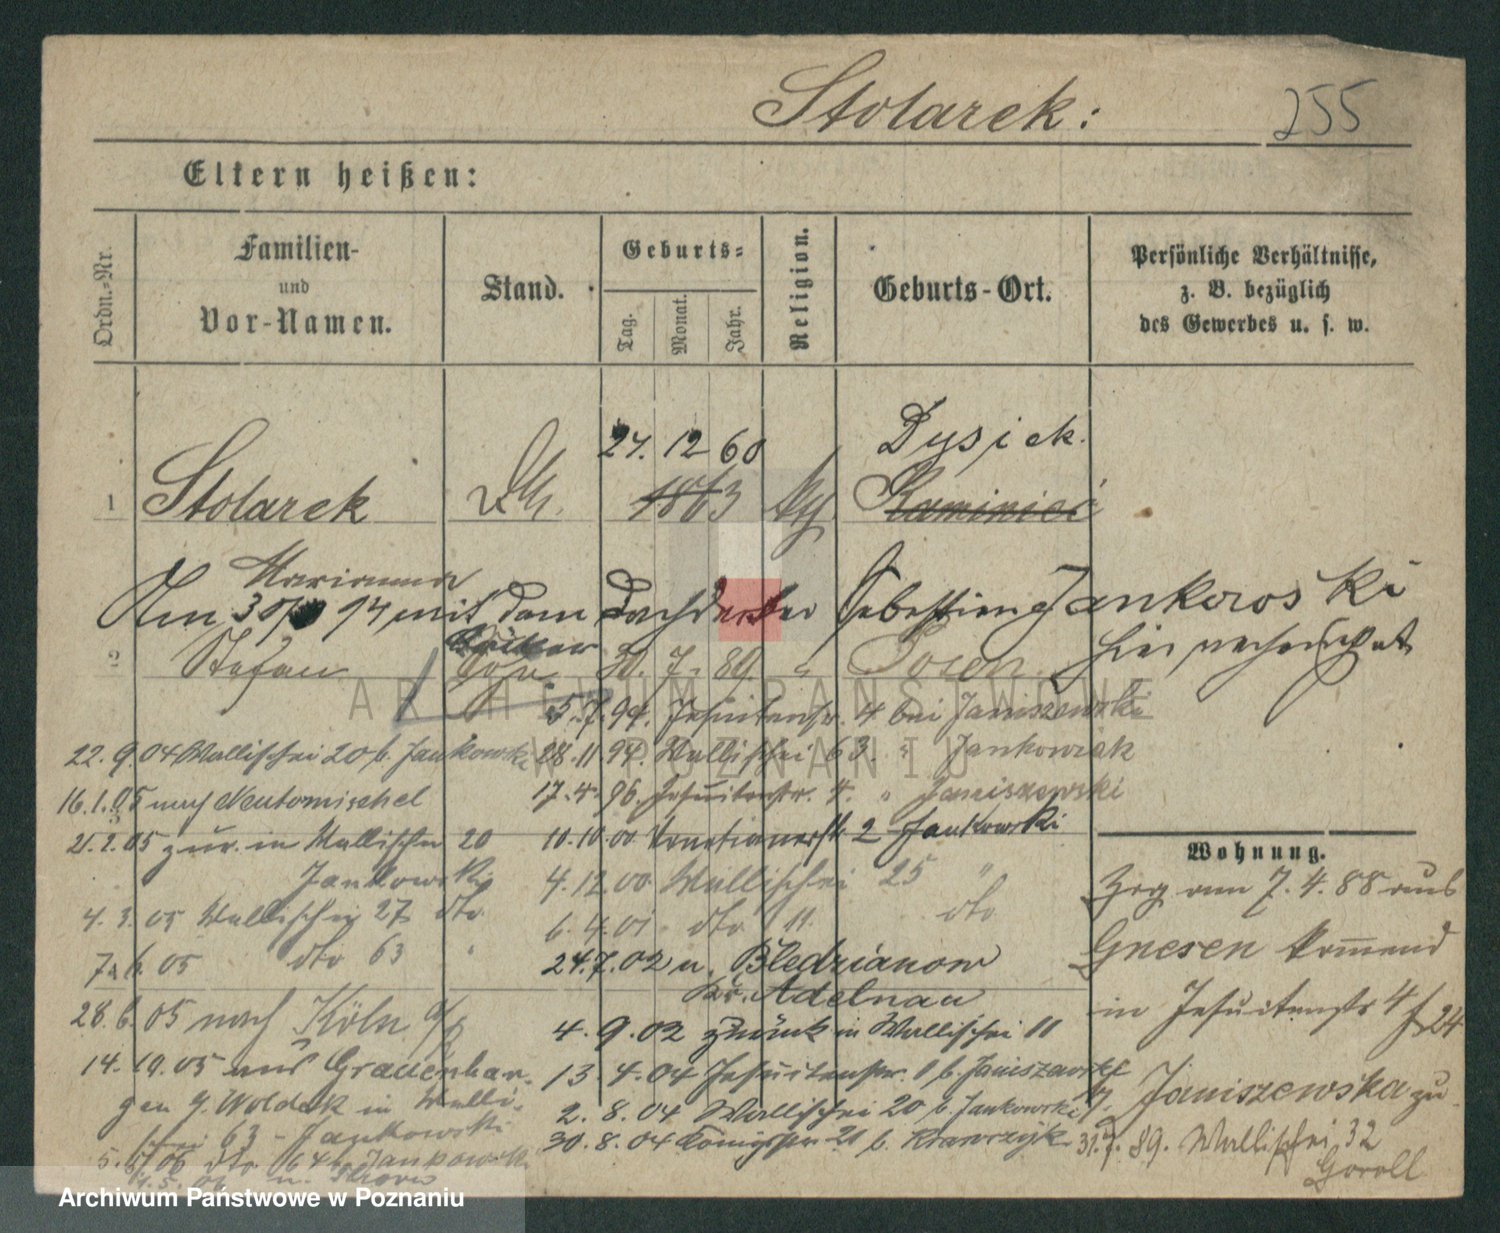 Stolarek:
255
Eltern heißen:
Ordn.-Nr.
Familien-
und
Vor-Namen.
Stand.
Geburts-
Tag.
Monat.
Jahr.
Religion.
Geburts-Ort.
Persönliche Verhältnisse,
z. B. bezüglich
des Gewerbes u. s. w.
27. 12 60
Dysiek.
1 Stolarek
1863
Kaminiec
Marianna
Am 30/ 94 mit dem Sebastian Jankowski
hier
2 Stefan
30. 7. 89. " Posen
5.7.94. Jesuitenstr. 4 bei Janiszewski
22.9.04 Wallischei 20 b. Jankowski
28.11.94. Wallischei 63. " Jankowiak
16.1.05 nach Neutomischel
17.4.96. Jesuitenstr. 4. " Janiszewski
21.2.05 zur. in Wallischei 20
Jankowski
10.10.00 Venetianerstr. 2 Jankowski
4.12.00 Wallischei 25 "
4.3.05 Wallischei 27 dto
6.4.01 dto 11. dto
7.6.05 dto 63 "
24.7.02 n. Bledzianow
Kr. Adelnau
28.6.05 nach Köln a/R
4.9.02 zurück in Wallischei 11
14.10.05 aus Grauenhar-
gen b. Woldek in Walli-
schei 63 - Jankowski
13.4.04 Jesuitenstr. 1 b. Janiszewski
2.8.04 Wallischei 20 b. Jankowski
30.8.04 Königstr. 21 b. Krawczyk
5. 06 dto 64 b. Jankowski
Wohnung.
Zzg am 7.4.88 aus
Gnesen kommend
in Jesuitenstr 4 f 24
b. Janiszewska zu.
31.7.89. Wallischei 32
Goroll
ARCHIWUM PAŃSTWOWE
W POZNANIU
Archiwum Państwowe w Poznaniu